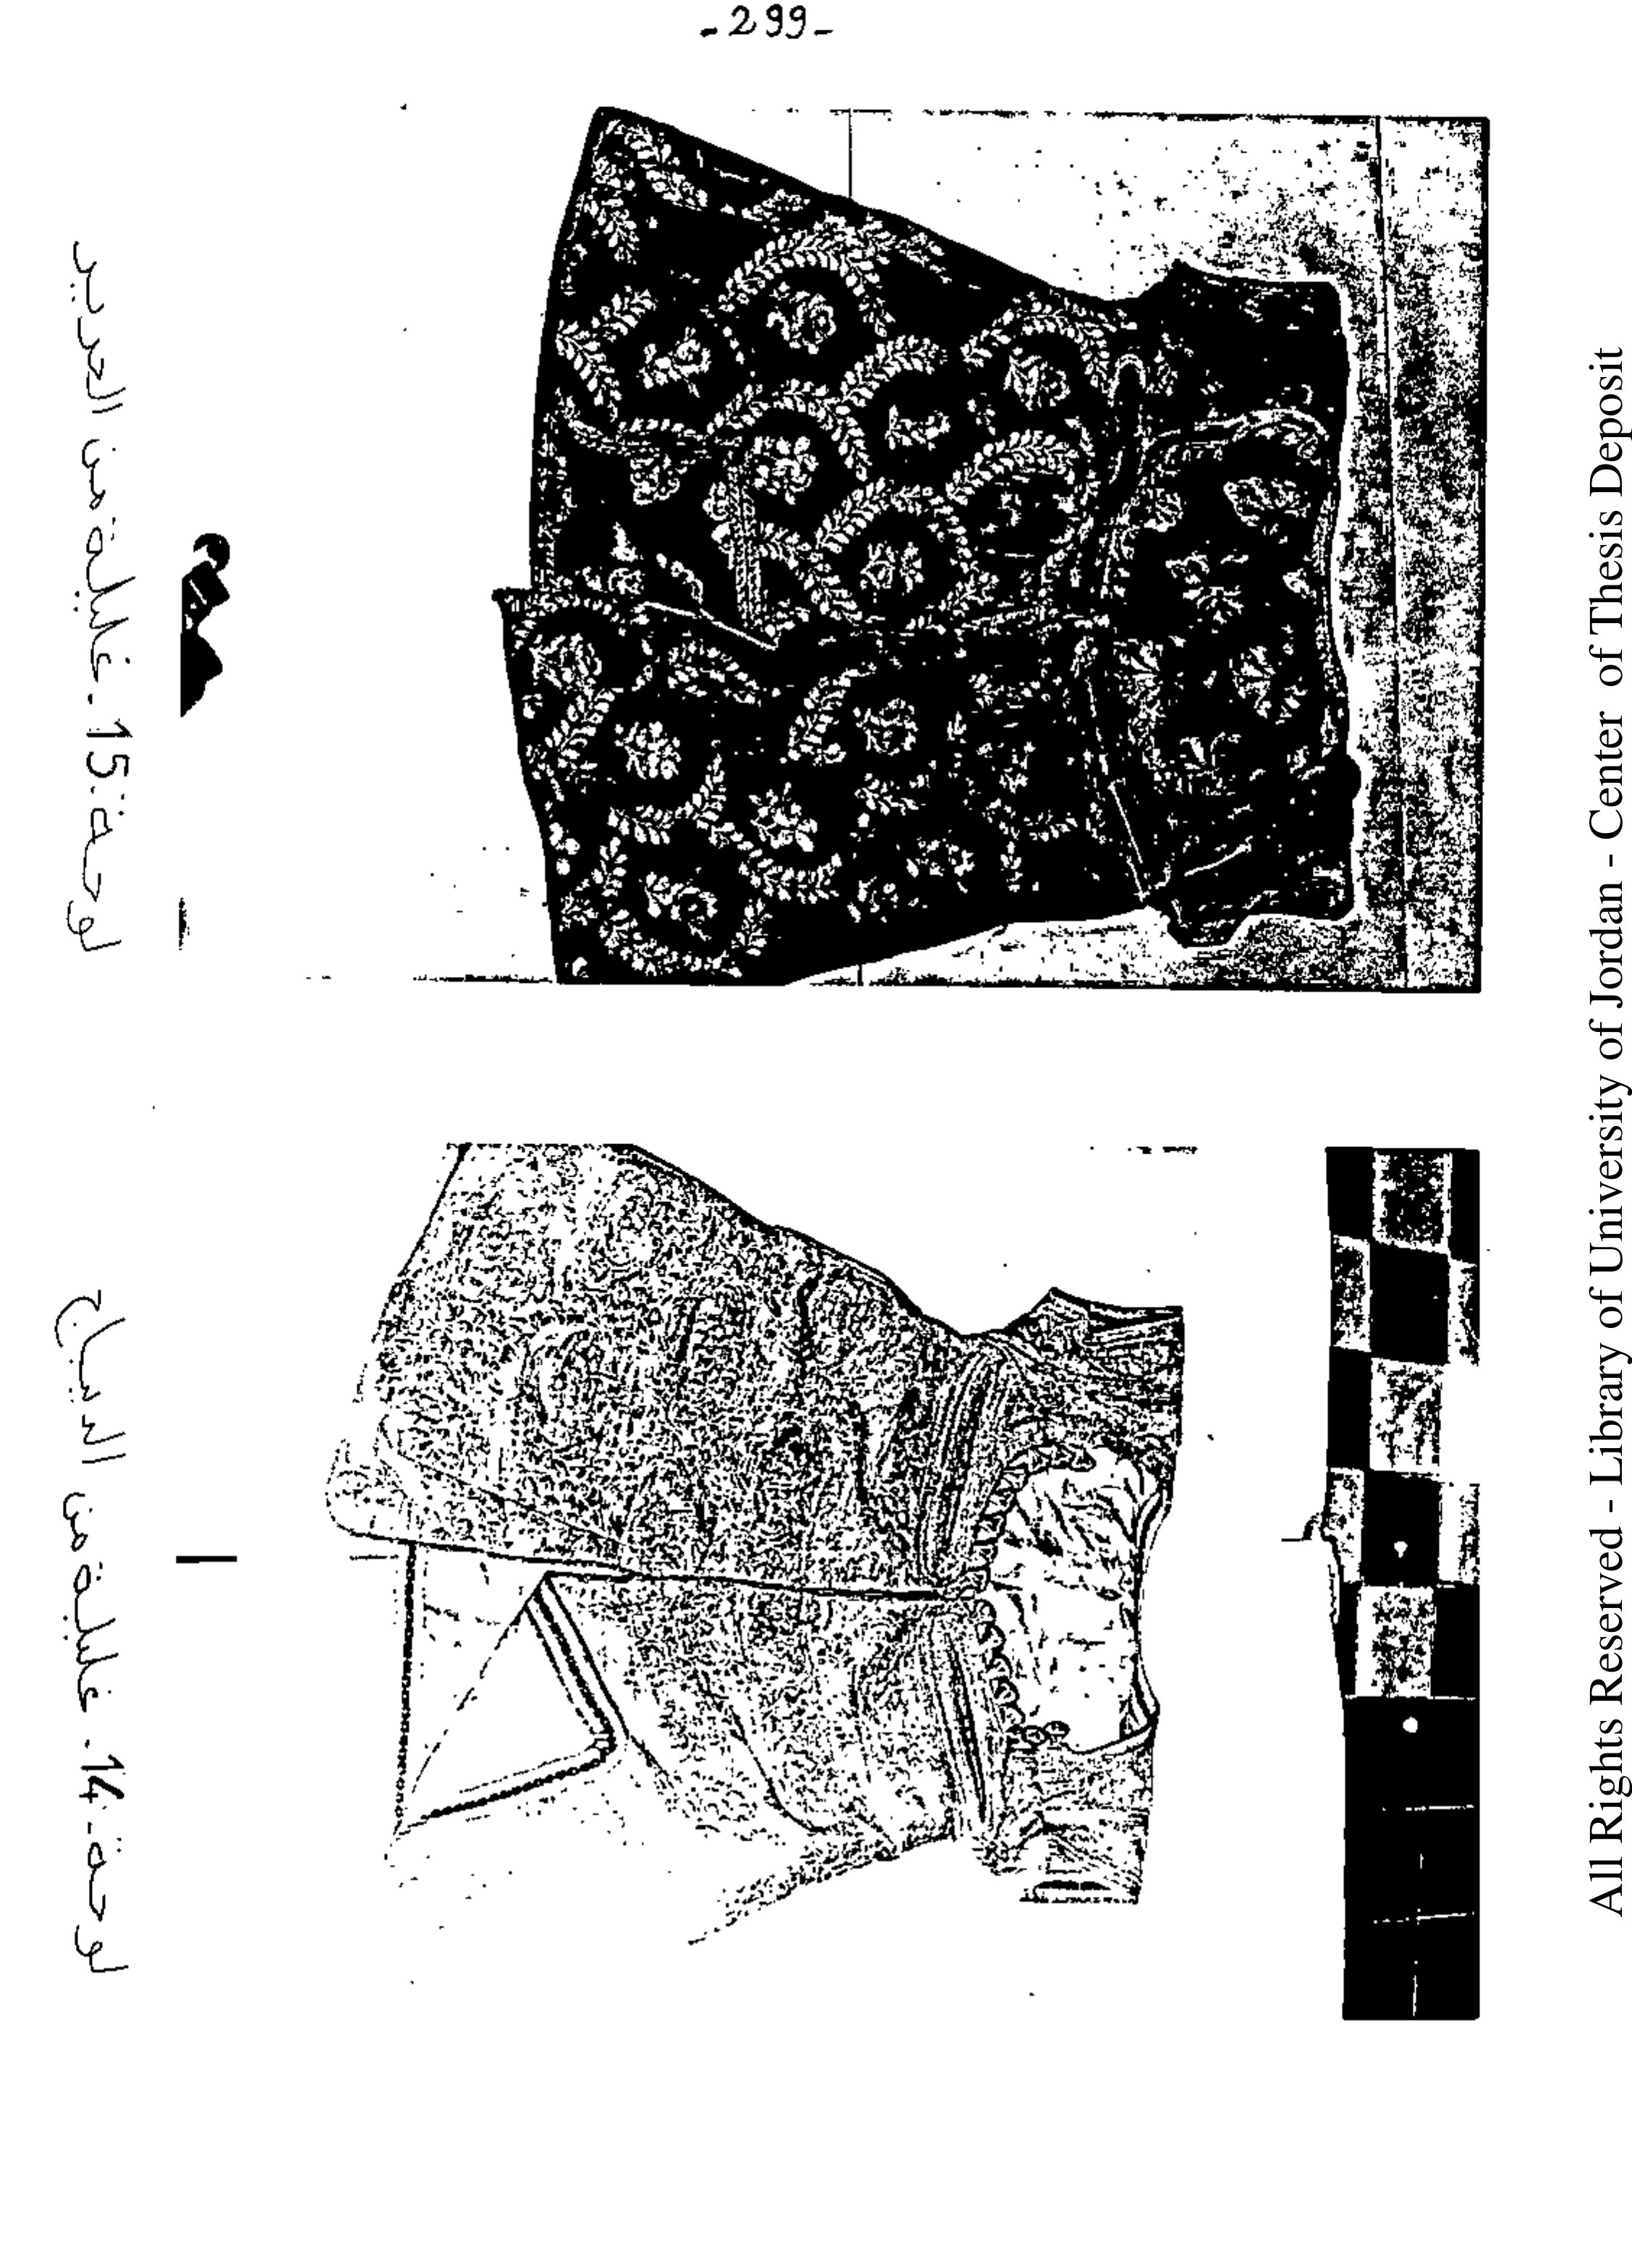 -299-
لوحة:15. غليلة من الحرير
لوحة:14. غليلة من الديباج
All Rights Reserved - Library of University of Jordan - Center of Thesis Deposit